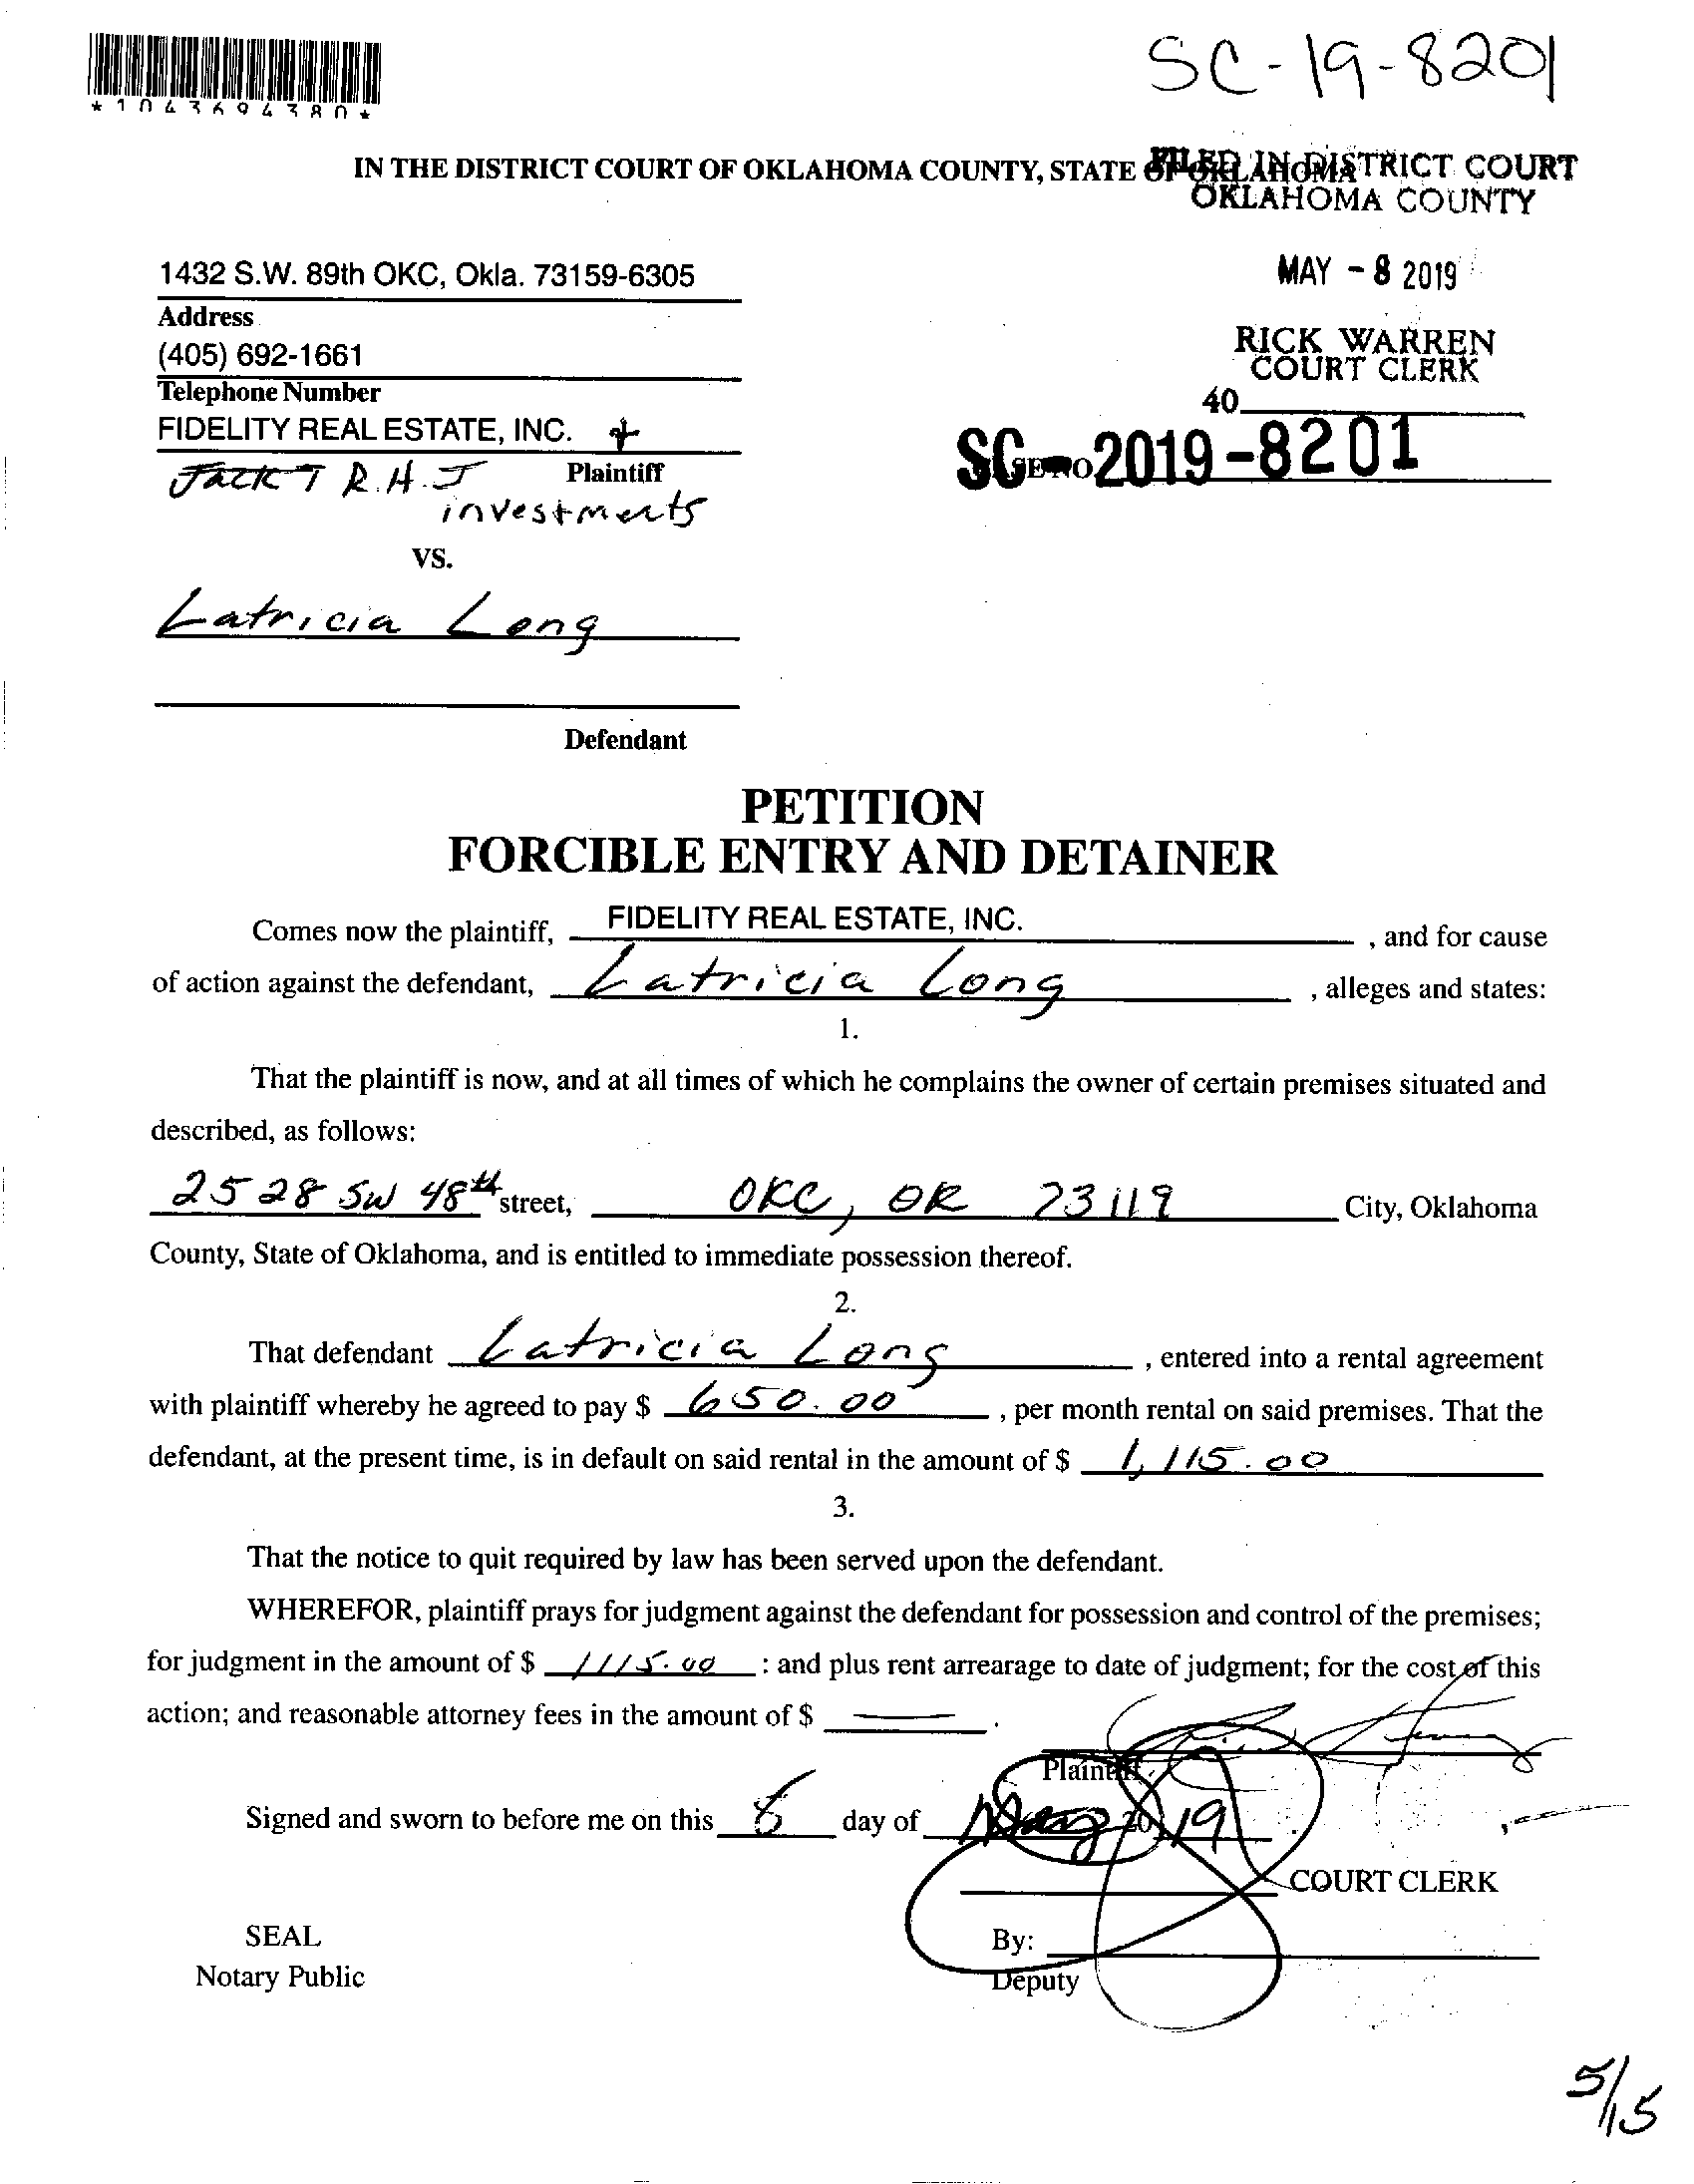 SC-19-8201
*1043694380*
IN THE DISTRICT COURT OF OKLAHOMA COUNTY, STATE OF OKLAHOMA
FILED IN DISTRICT COURT
OKLAHOMA COUNTY
1432 S.W. 89th OKC, Okla. 73159-6305
MAY - 8 2019
Address
RICK WARREN
COURT CLERK
(405) 692-1661
Telephone Number
40
FIDELITY REAL ESTATE, INC. +
SC-2019-8201
Plaintiff
R.H.J
investments
VS.
Latricia Long
Defendant
PETITION
FORCIBLE ENTRY AND DETAINER
Comes now the plaintiff, FIDELITY REAL ESTATE, INC. , and for cause
of action against the defendant, Latricia Long , alleges and states:
1.
That the plaintiff is now, and at all times of which he complains the owner of certain premises situated and
described, as follows:
2528 SW 48th street, OKC, OK 73119 City, Oklahoma
County, State of Oklahoma, and is entitled to immediate possession thereof.
2.
That defendant Latricia Long , entered into a rental agreement
with plaintiff whereby he agreed to pay $ 650.00 , per month rental on said premises. That the
defendant, at the present time, is in default on said rental in the amount of $ 1,115.00
3.
That the notice to quit required by law has been served upon the defendant.
WHEREFOR, plaintiff prays for judgment against the defendant for possession and control of the premises;
for judgment in the amount of $ 1115.00 : and plus rent arrearage to date of judgment; for the cost of this
action; and reasonable attorney fees in the amount of $ — .
Plaintiff
Signed and sworn to before me on this 8 day of May 20 19
COURT CLERK
SEAL
By:
Notary Public
Deputy
5/15